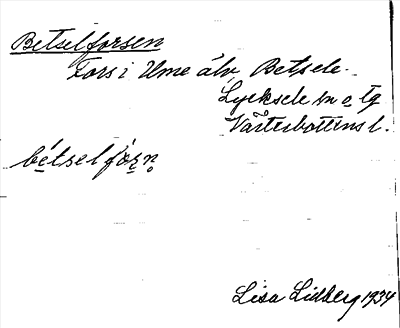 Betselforsen
Fors i Ume älv, Betsele.
Lycksele sn o tg
Västerbottens l.
bétselfòrn
Lisa Lidberg 1934